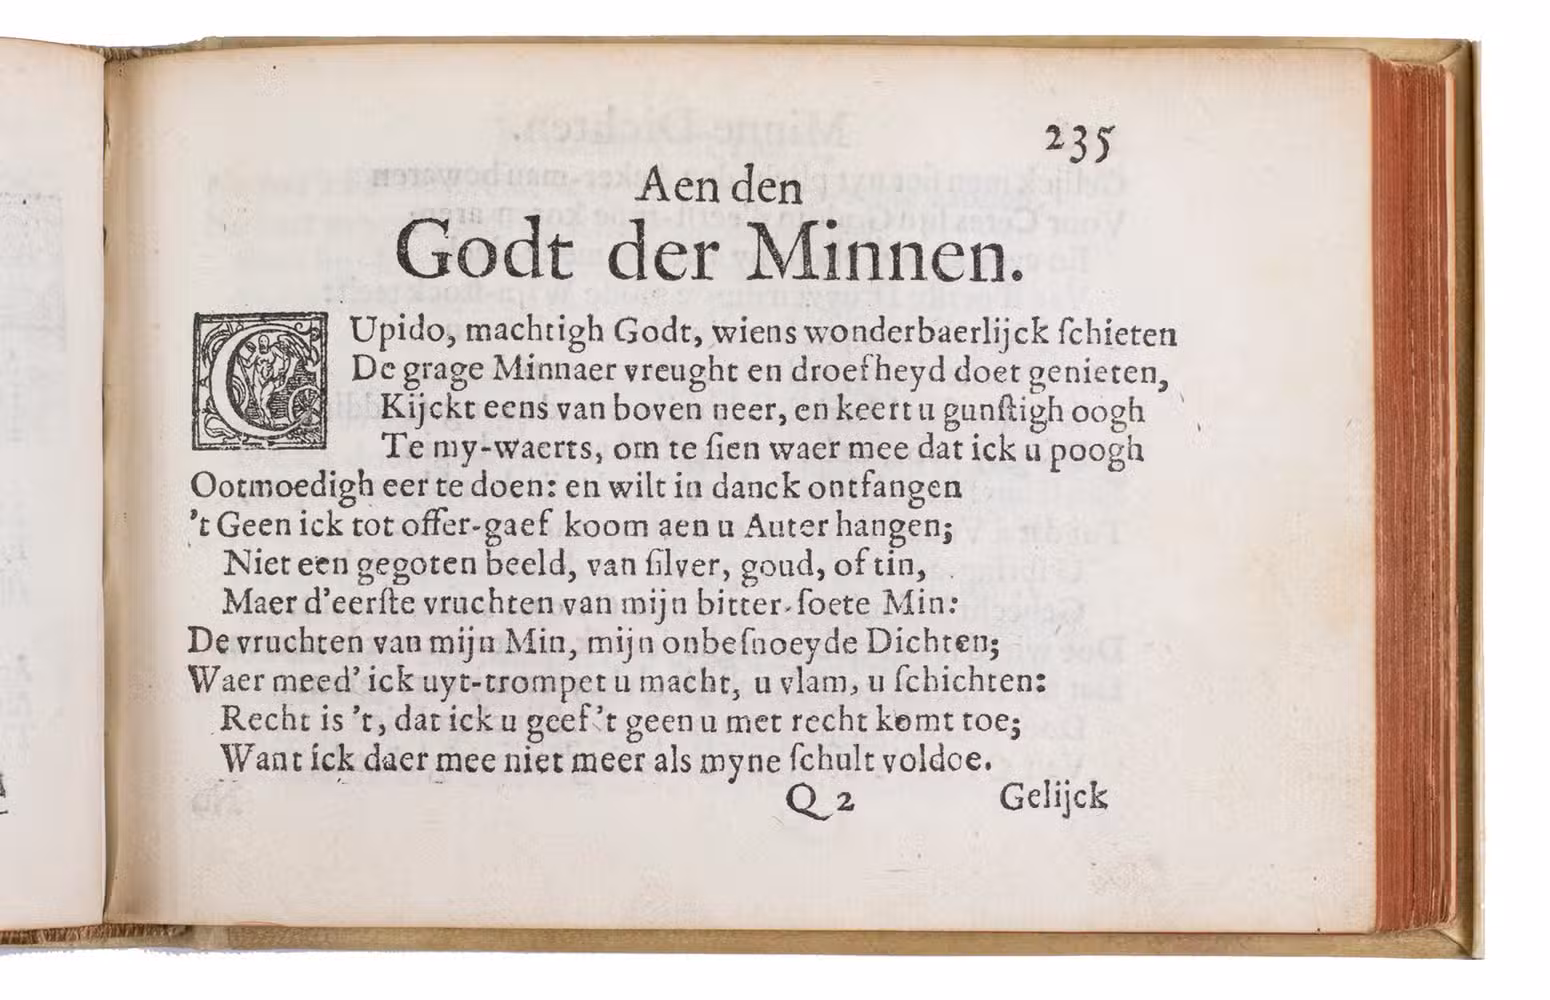 235
Aen den
Godt der Minnen.
CUpido, machtigh Godt, wiens wonderbaerlijck ſchieten
De grage Minnaer vreught en droefheyd doet genieten,
Kijckt eens van boven neer, en keert u gunſtigh oogh
Te my-waerts, om te ſien waer mee dat ick u poogh
Ootmoedigh eer te doen: en wilt in danck ontfangen
't Geen ick tot offer-gaef koom aen u Auter hangen;
Niet een gegoten beeld, van ſilver, goud, of tin,
Maer d'eerſte vruchten van mijn bitter-ſoete Min:
De vruchten van mijn Min, mijn onbeſnoeyde Dichten;
Waer meed' ick uyt-trompet u macht, u vlam, u ſchichten:
Recht is 't, dat ick u geef 't geen u met recht komt toe;
Want ick daer mee niet meer als myne ſchult voldoe.
Q 2 Gelijck